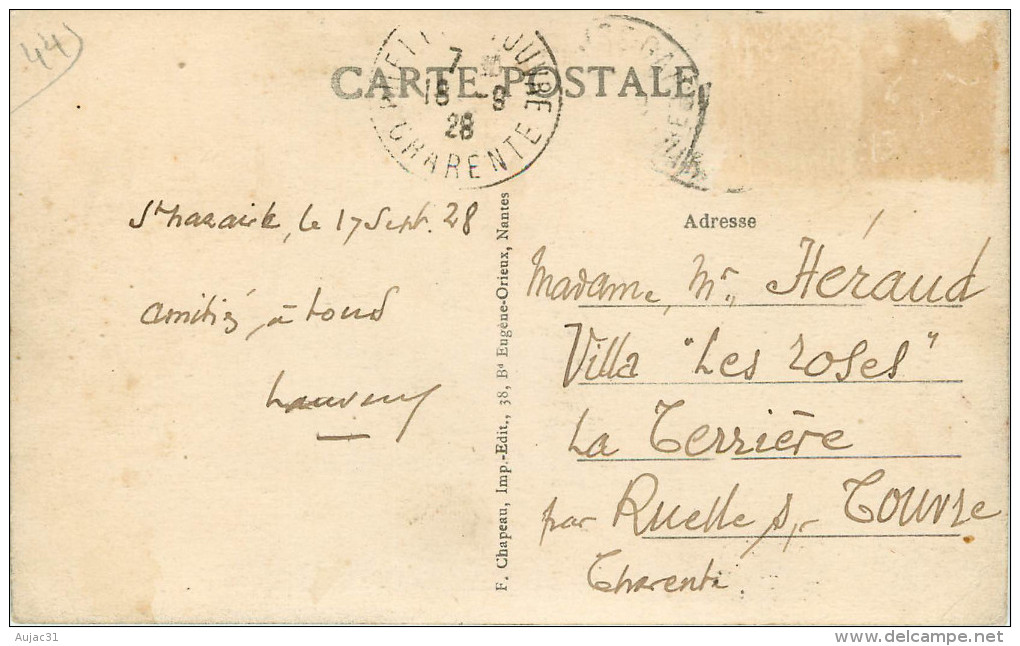 44
CARTE POSTALE
7
18 - 9
28
CHARENTE
St Nazaire, le 17 Sept. 28
amitiés à tous
F. Chapeau, Imp.-Edit., 38, Bd Eugène-Orieux, Nantes
Adresse
Madame, Mr. Héraud
Villa "Les roses"
La Terrière
par Ruelle s/ Touvre
Charente
Aujac31
http://www.delcampe.net